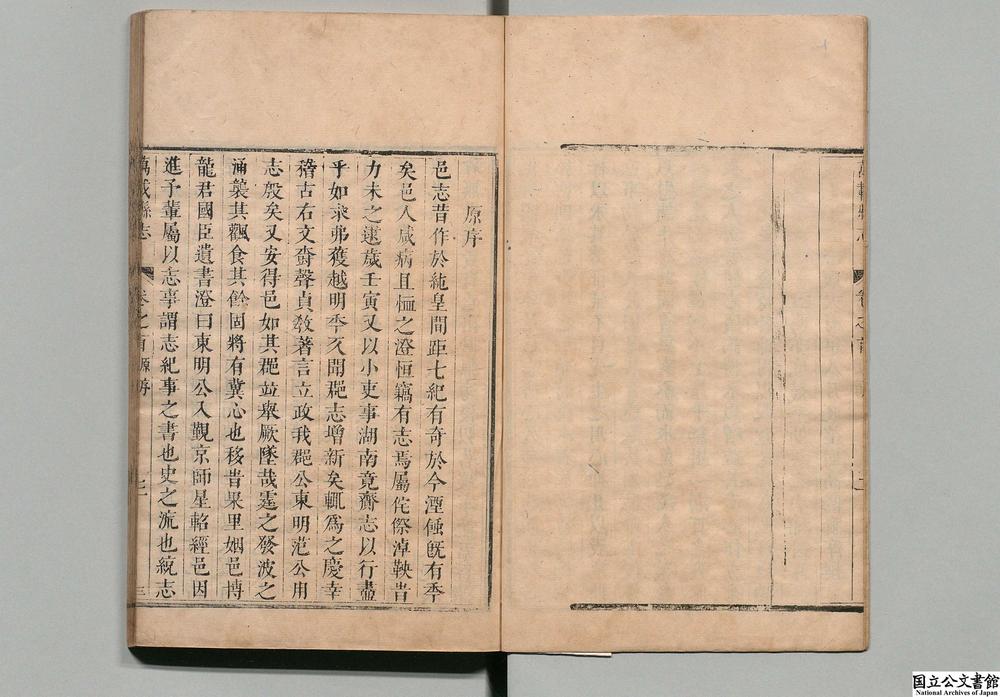 原序
邑志昔作於純皇間距七紀有奇於今湮蝕旣有秊
矣邑人咸病且恤之澄恒竊有志焉屬侘傺淖鞅旹
力未之逮歲壬寅又以小吏事湖南竟齎志以行盡
乎如求弗獲越明秊又聞郡志增新矣輒爲之慶幸
稽古右文聲貞敎著言立政我郡公東明范公用
志殷矣又安得邑如其郡竝舉厥墜哉霆之發波之
涌襲其飄食其餘固將有冀心也移旹果里姻邑博
龍君國臣遺書澄曰東明公入覲京師星軺經邑因
進予輩屬以志事謂志紀事之書也史之流也統志
萬載縣志 卷之首 原序 三
国立公文書館
National Archives of Japan